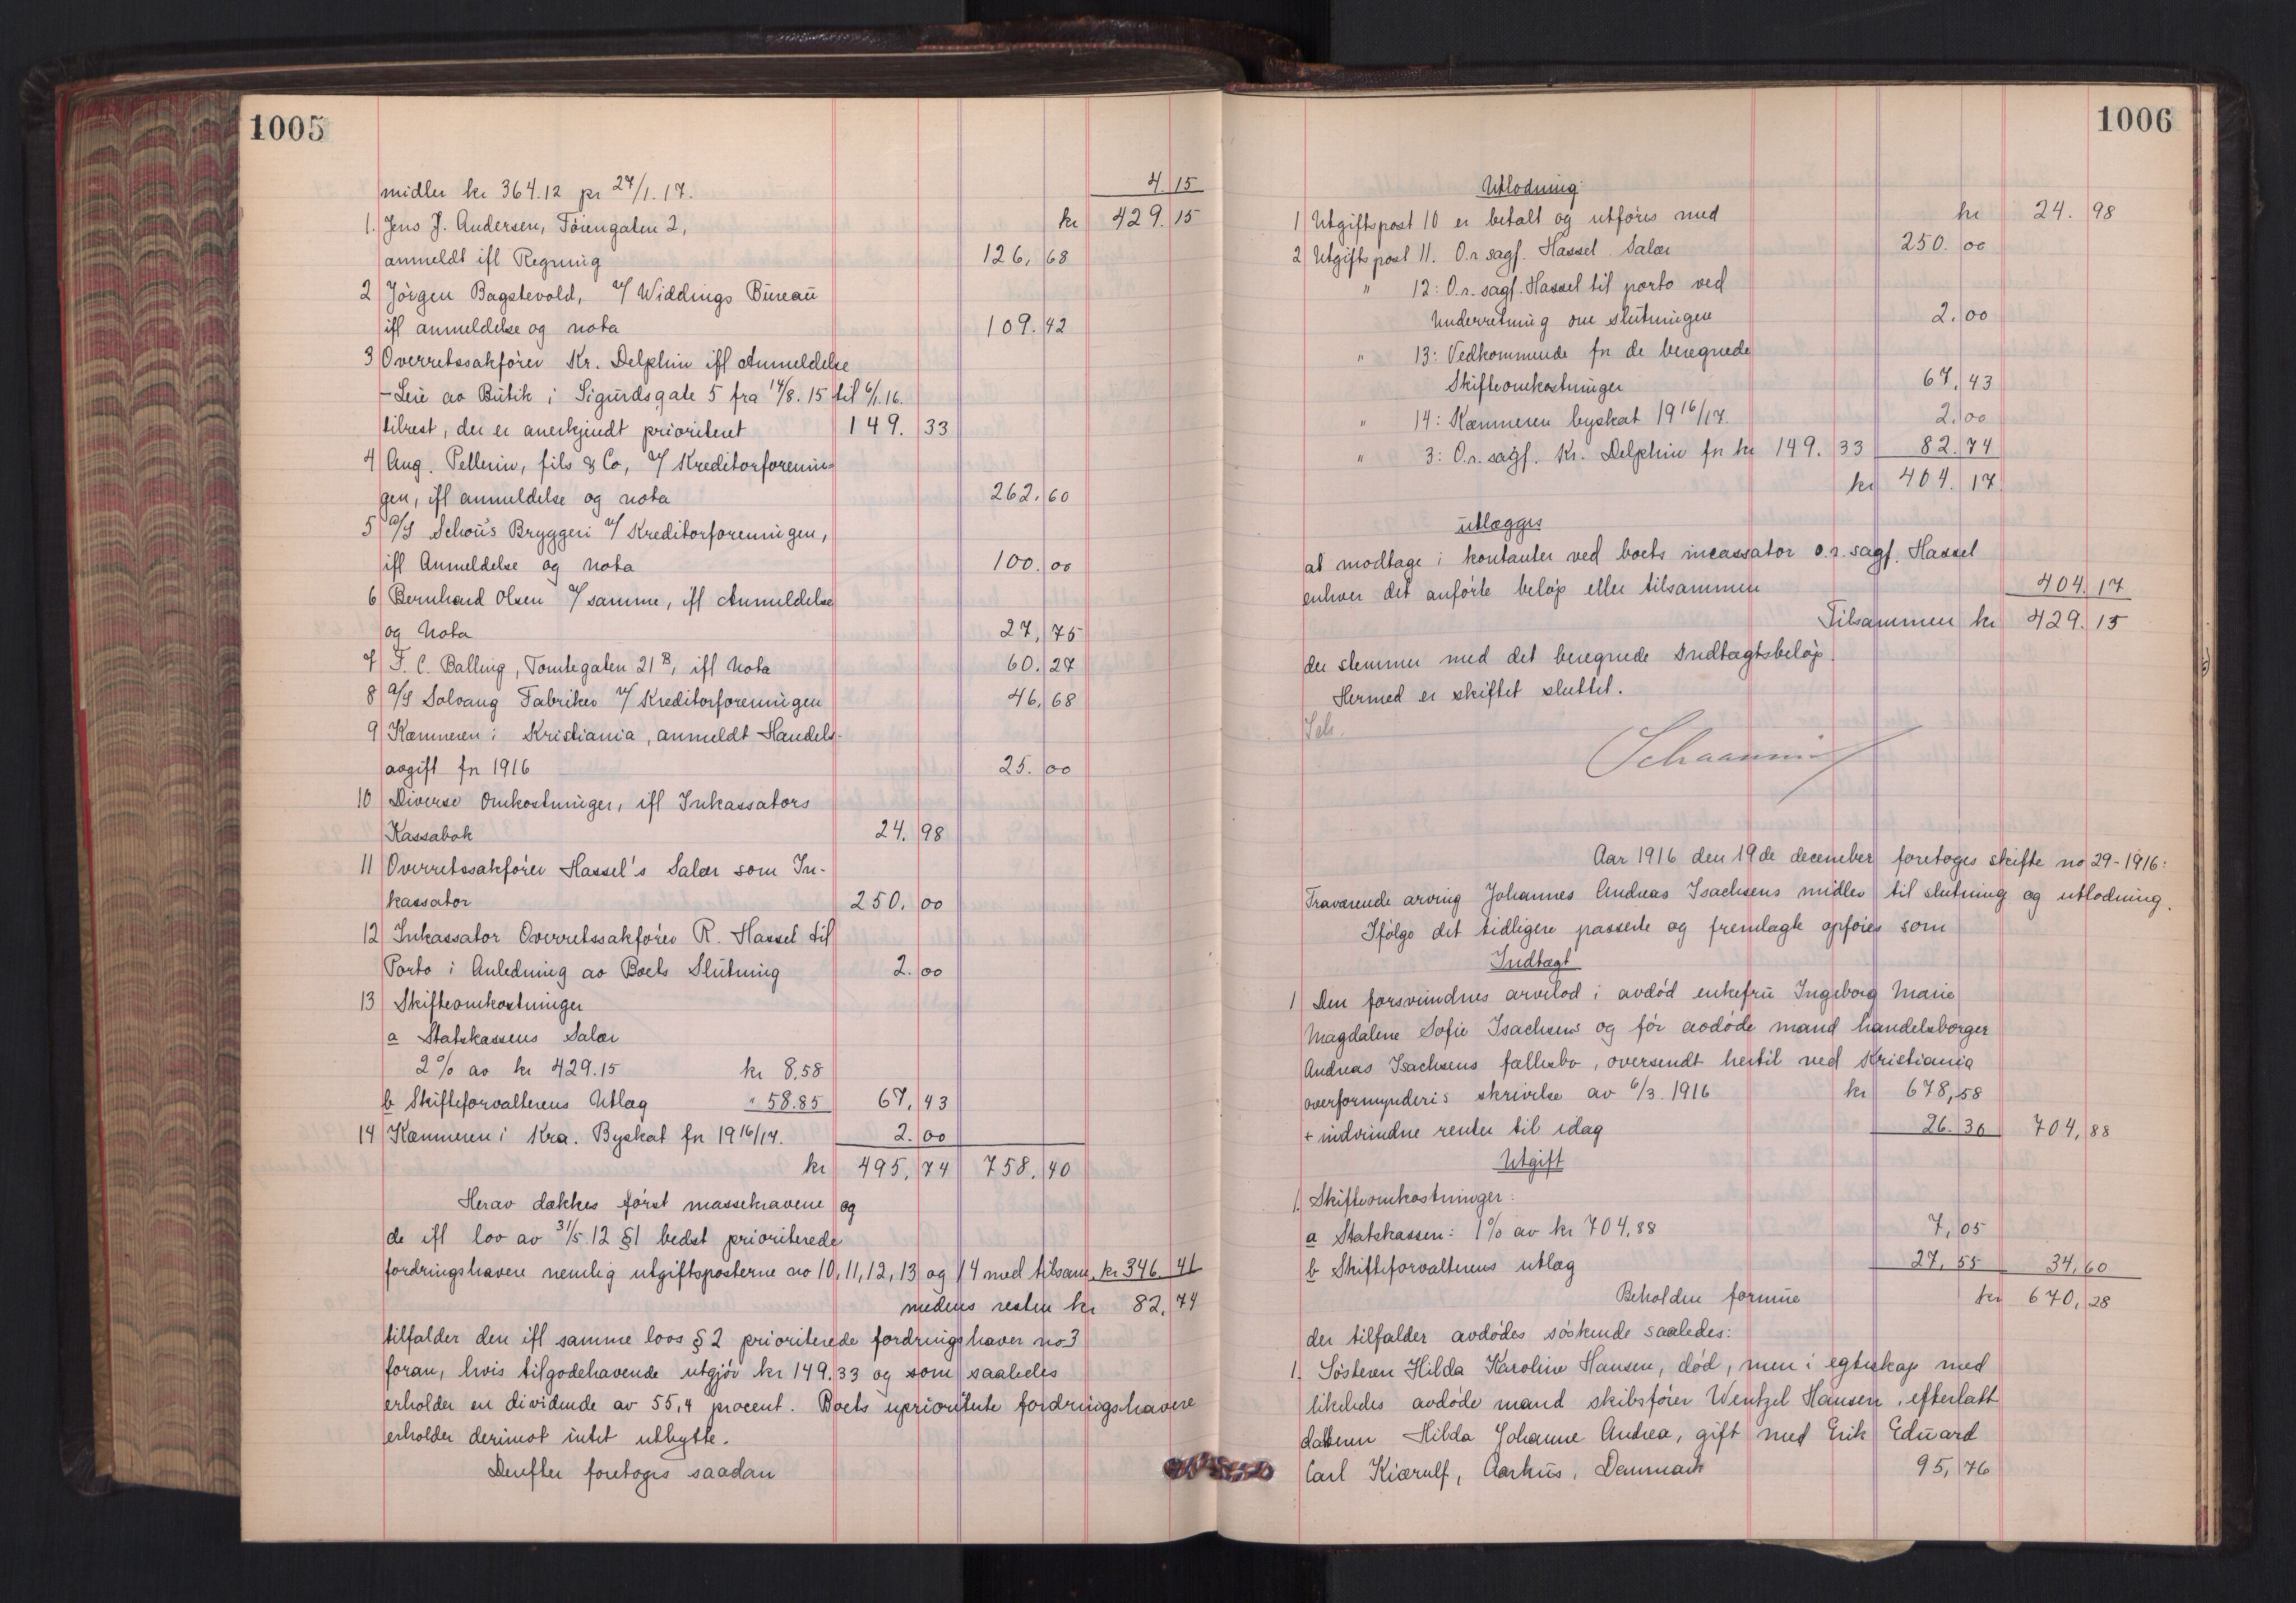 1005
midler kr 364.12 pr 27/1.17. 4.15
kr 429.15
1. Jens J. Andersen, Töiengaten 2,
anmeldt ifl Regning 126,68
2 Jörgen Bagstevold, v/ Widdings Bureau
ifl anmeldelse og nota 109.42
3 Overretssakförer Kr. Delphin ifl Anmeldelse
- Leie av Butik i Sigurdsgate 5 fra 14/8.15 til 6/1.16.
tilrest, der er anerkjendt prioritert 149.33
4 Aug. Pellerin, fils & Co, v/ Kreditorforenin-
gen, ifl anmeldelse og nota 262.60
5 A/S Schou's Bryggeri v/ Kreditorforeningen,
ifl Anmeldelse og nota 100.00
6 Bernhard Olsen v/ samme, ifl Anmeldelse
og Nota 27,75
7 F. C. Balling, Tomtegaten 21 B, ifl Nota 60.27
8 A/S Solvang Fabriker v/ Kreditorforeningen 46,68
9 Kæmneren i Kristiania, anmeldt Handels-
avgift for 1916 25.00
10 Diverse Omkostninger, ifl Inkassators
Kassabok 24.98
11 Overretssakförer Hassel's Salær som In-
kassator 250.00
12 Inkassator Overretssakförer R. Hassel til
Porto i Anledning av Boets Slutning 2.00
13 Skifteomkostninger
a Statskassens Salær
2% av kr 429.15 kr 8,58
b Skifteforvalterens Utlæg " 58.85 67,43
14 Kæmneren i Kra. Byskat for 1916/17. 2.00
kr 495,74 758.40
Herav dækkes först massekravene og
de ifl lov av 31/5.12 §1 bedst prioriterede
fordringshavere nemlig utgiftsposterne no 10, 11, 12, 13 og 14 med tilsam. kr 346 41
medens resten kr 82,74
tilfalder den ifl samme lovs § 2 prioriterede fordringshaver no 3
foran, hvis tilgodehavende utgjör kr 149.33 og som saaledes
erholder en dividende av 55,4 procent. Boets uprioriterte fordringshavere
erholder derimot intet utbytte.
Derefter foretoges saadan
1006
Utlodning:
1 Utgiftspost 10 er betalt og utföres med kr 24.98
2 Utgiftspost 11. O.r.sagf. Hassel Salær 250.00
" 12: O.r.sagf. Hassel til porto ved
Underretning om slutningen 2.00
" 13: Vedkommende for de beregnede
Skifteomkostninger 67,43
" 14: Kæmneren byskat 1916/17. 2.00
" 3: O.r.sagf. Kr. Delphin for kr 149.33 82.74
kr 404.17
utlægges
at modtage i kontanter ved boets incassator o.r.sagf. Hassel
enhver det anförte belöp eller tilsammen 404.17
Tilsammen kr 429.15
der stemmer med det beregnede Indtægtsbelöp.
Hermed er skiftet sluttet.
Sch.
Schaanning
Aar 1916 den 19de december foretoges skifte no 29-1916:
Fraværende arving Johannes Andreas Isachsens midler til slutning og utlodning.
Ifölge det tidligere passerte og fremlagte opföres som
Indtægt
1 Den forsvundnes arvelod i avdöd enkefru Ingeborg Marie
Magdalene Sofie Isachsens og för avdöde mand handelsborger
Andreas Isachsens fællesbo, oversendt hertil ved Kristiania
overformynderis skrivelse av 6/3.1916 kr 678,58
+ indvundne renter til idag 26.30 704,88
Utgift
1. Skifteomkostninger:
a Statskassen: 1% av kr 704,88 7,05
b Skifteforvalterens utlæg 27,55 34,60
Beholden formue kr 670,28
der tilfalder avdödes söskende saaledes:
1. Sösteren Hilda Karoline Hansen, död, men i egteskap med
likeledes avdöde mand skibsförer Wentzel Hansen, efterlatt
datteren Hilda Johanne Andrea, gift med Erik Eduard
Carl Kiærulf, Aarhus, Danmark 95,76